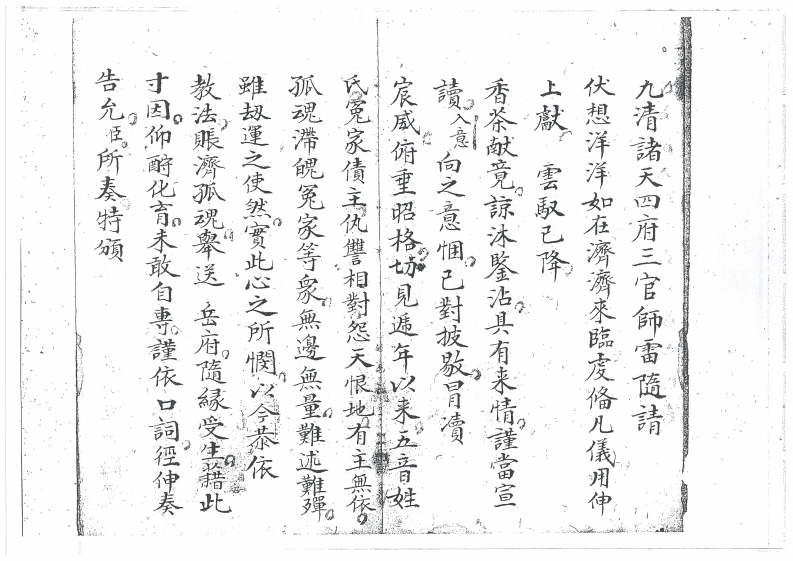 九清諸天四府三官師雷隨請
伏想洋洋如在濟濟來臨虔俻凡儀用伸
上獻 雲馭已降
香茶献竟諒沐鑒沾具有来情謹當宣
讀入意 向之意悃已對披敭冒凟
宸威俯垂昭格切見逓年以来五音姓
氏冤家債主仇讐相對怨天恨地有主無依
孤魂滯魄冤家等衆無邊無量難述難殫
雖劫運之使然實此心之所憫以今恭依
教法賑濟孤魂舉送 岳府隨縁受生藉此
寸因仰酧化育未敢自專謹依 口詞徑伸奏
告允臣所奏特頒